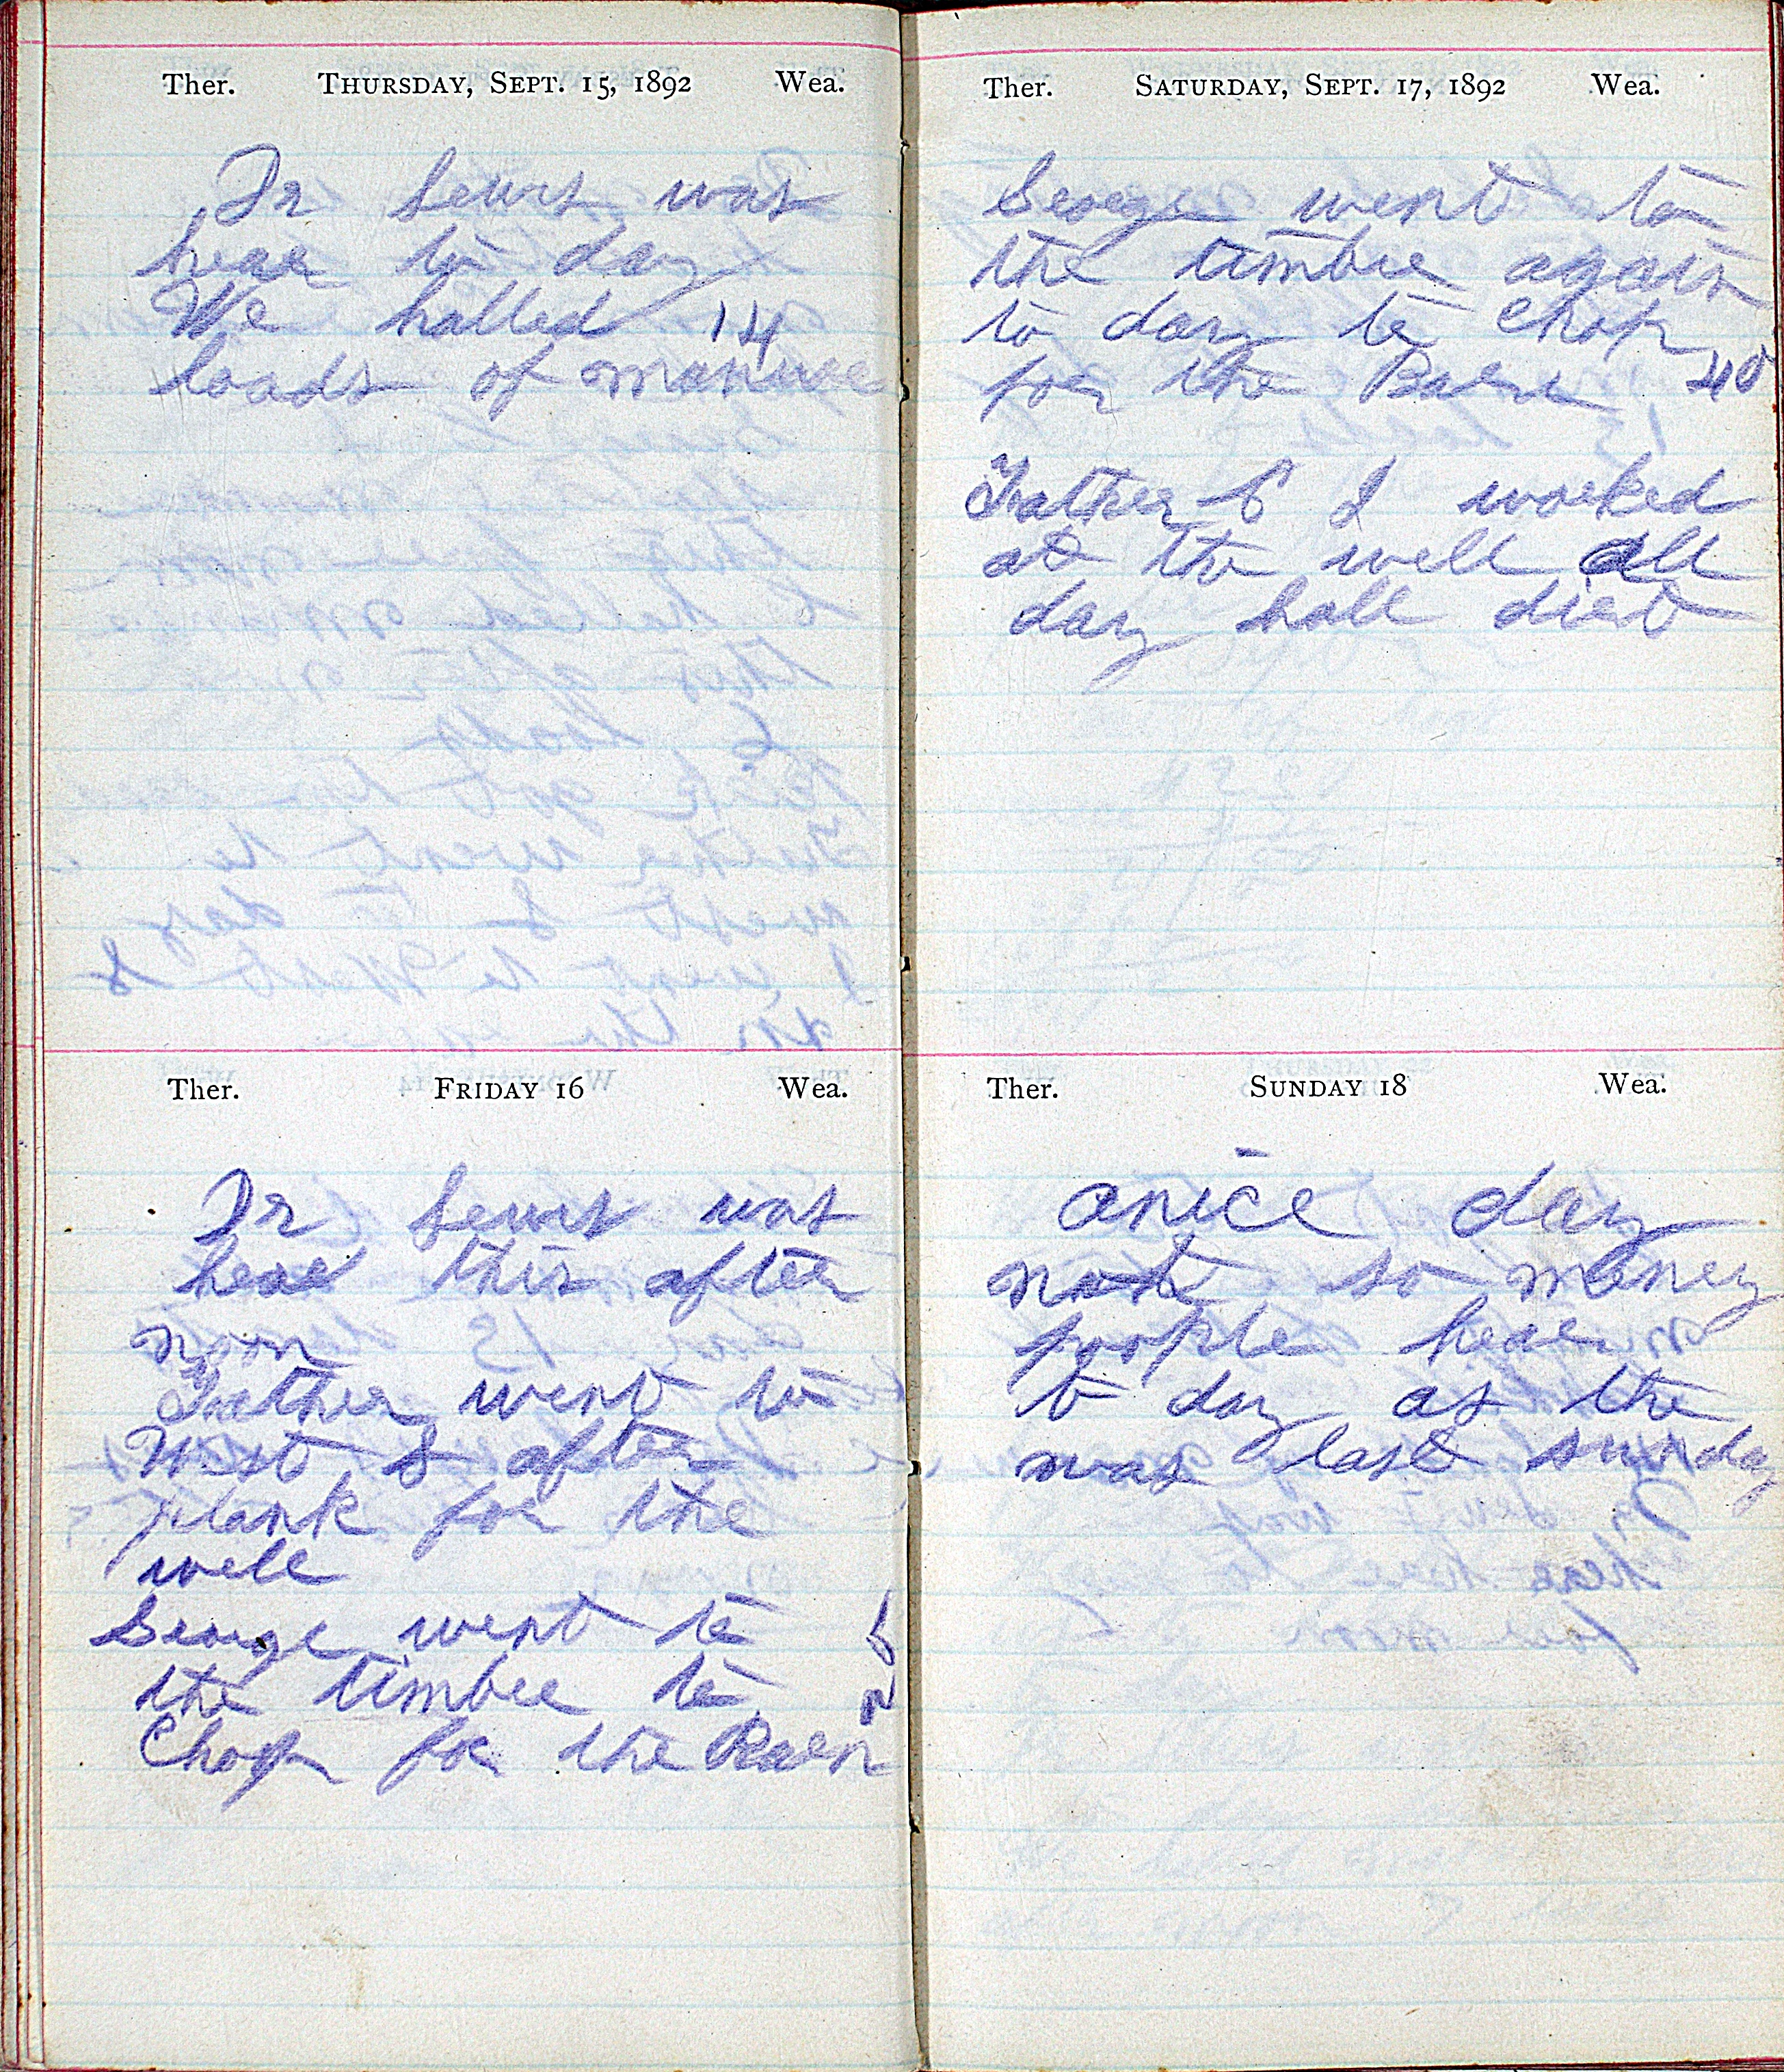 Ther. THURSDAY, SEPT. 15, 1892 Wea.
Dr Lewis was
hear to day
We halled 14
loads of manure
Ther. FRIDAY 16 Wea.
Dr Lewis was
hear this after
noon
Father went to
West S after
plank for the
well
George went to
the timber to
Chop for the Barn
Ther. SATURDAY, SEPT. 17, 1892 Wea.
George went to
the timbre again
to day to Chop
for the Barn 40
Father & I worked
at the well all
day hall dirt
Ther. SUNDAY 18 Wea.
a nice day
not so maney
poople hear
to day as the
was last sunday